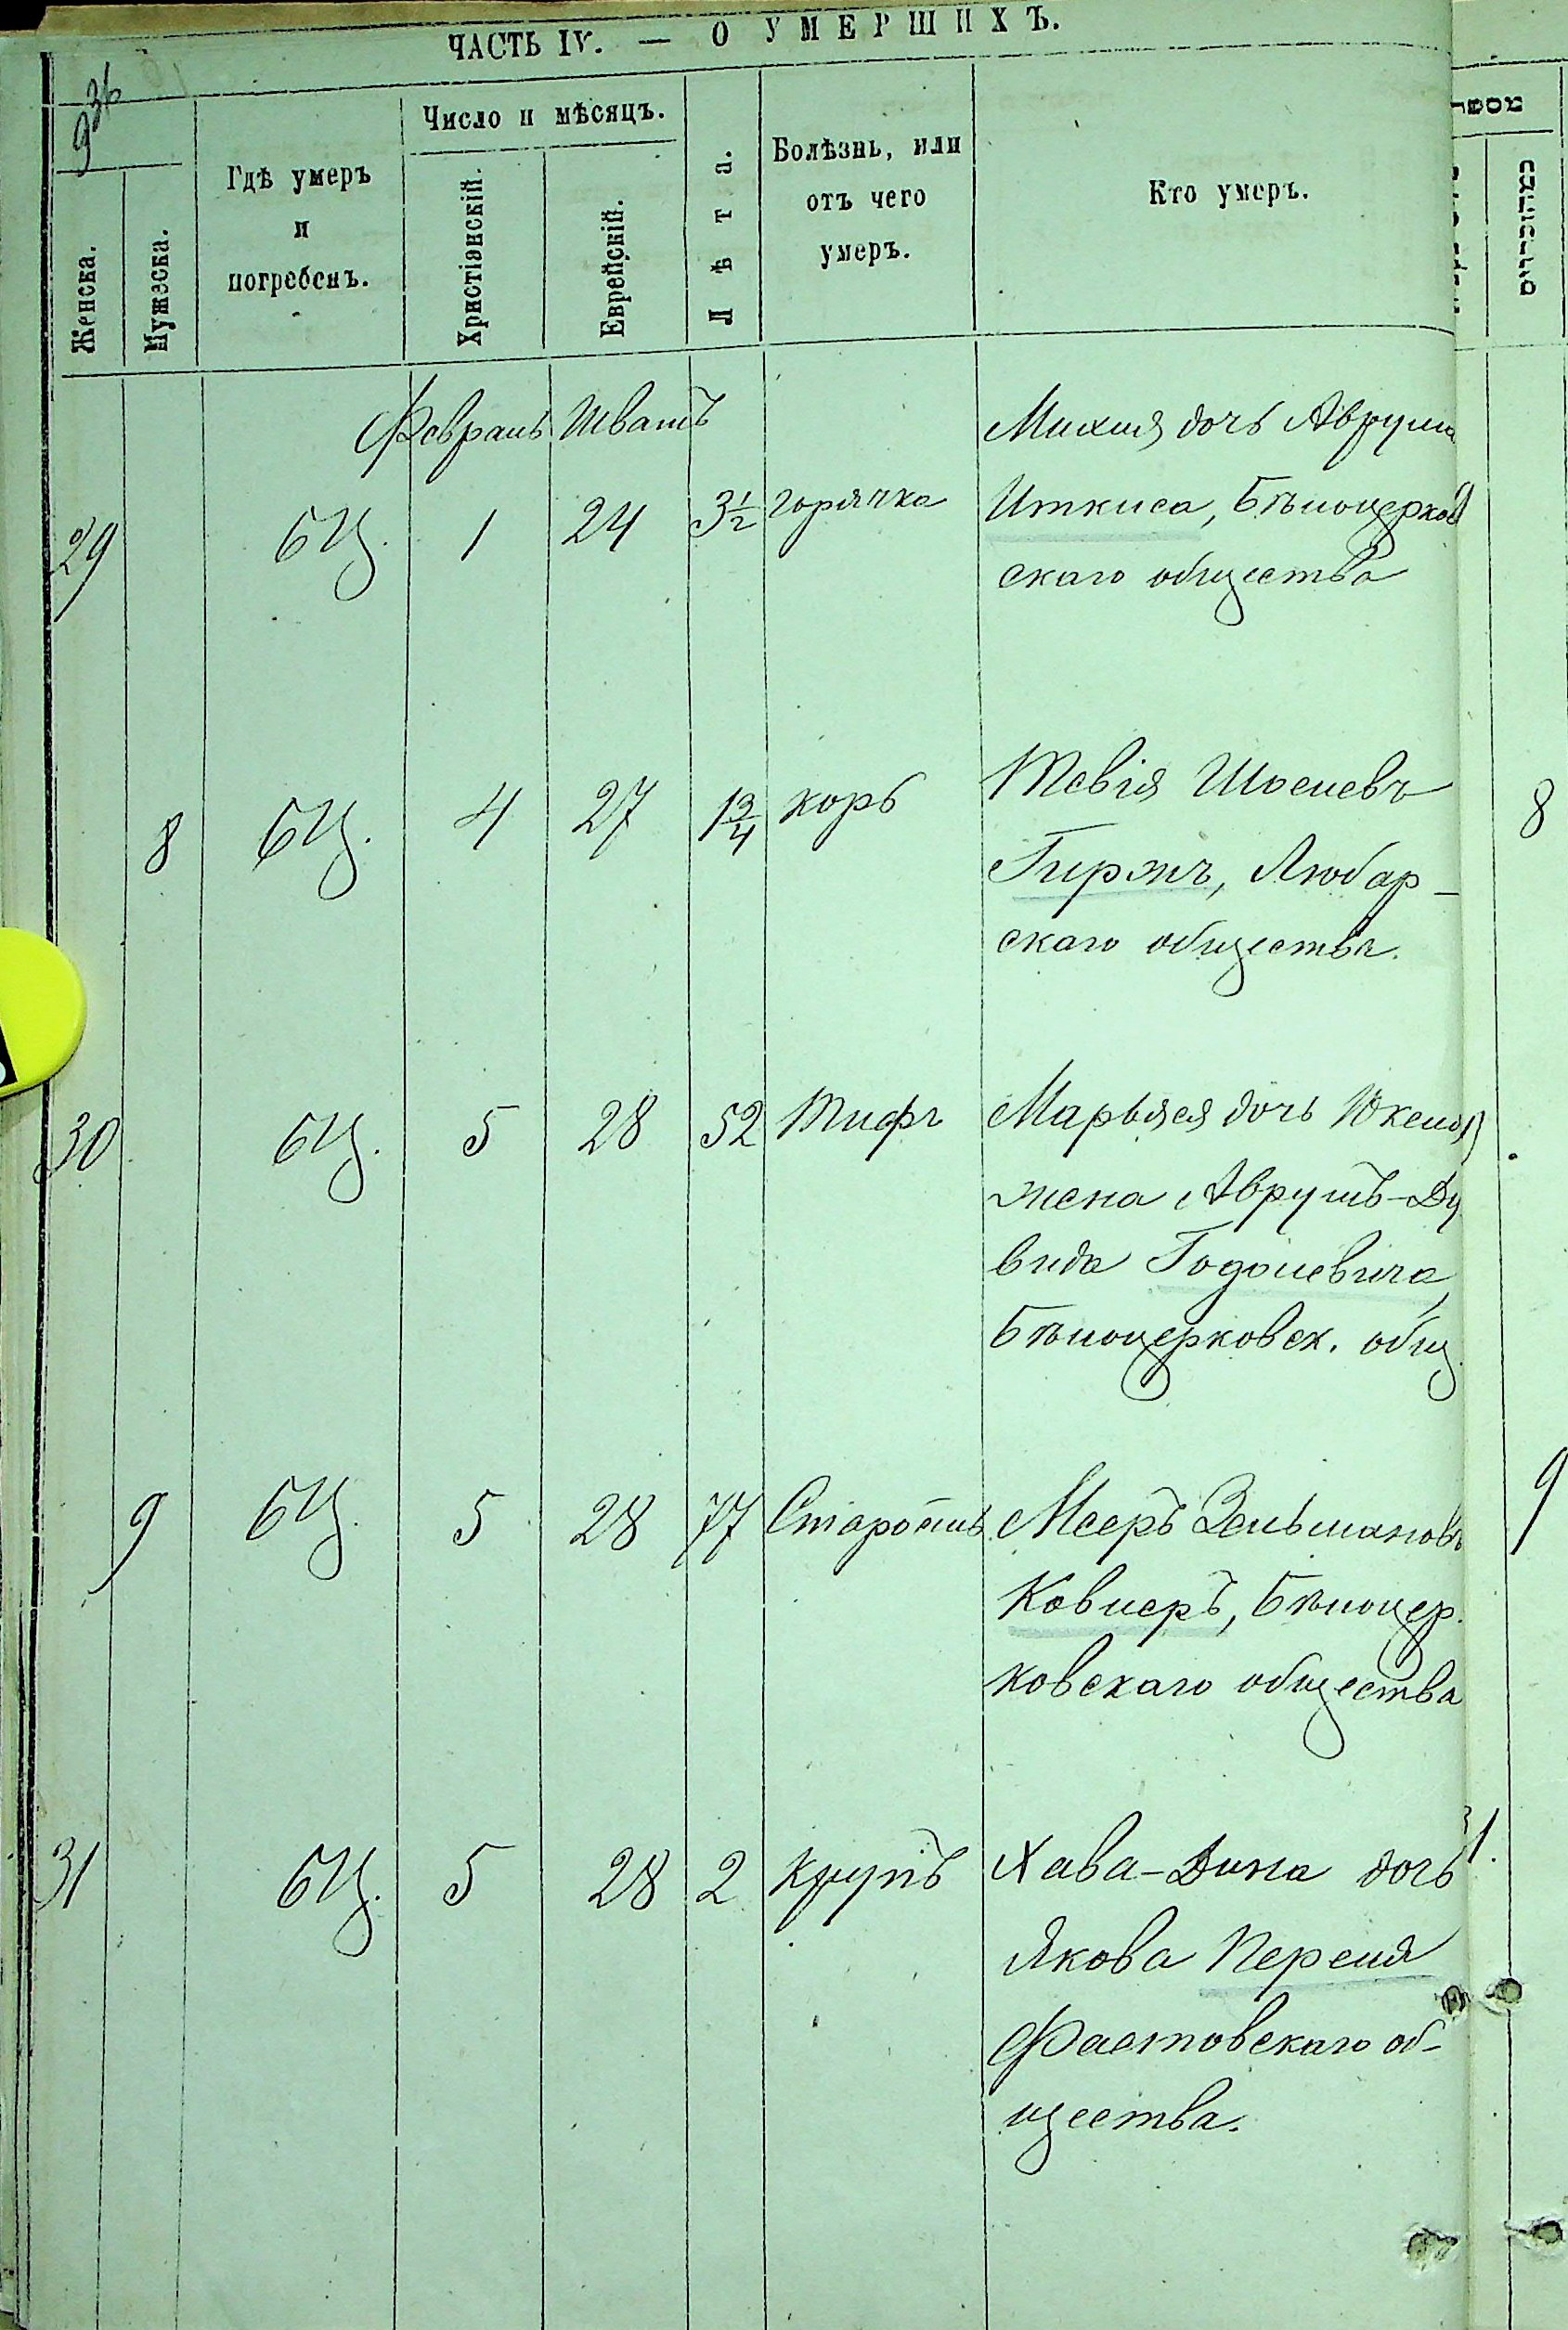 ЧАСТЬ IV. — О УМЕРШИХЪ.
936
Женска.
Мужеска.
Гдѣ умеръ
и
погребенъ.
Число и мѣсяцъ.
Христіанскій.
Еврейскій.
Лѣта.
Болѣзнь, или
отъ чего
умеръ.
Кто умеръ.
Февраль Шватъ
29 БЦ. 1 24 3 1/2 горячка
Михля дочь Аврума
Иткиса, Бѣлоцерков
скаго общества
8 БЦ. 4 27 1 3/4 корь
Тевія Шоелевъ
Гиржъ, Любар-
скаго общества.
8
30 БЦ. 5 28 52 Тифъ
Марьяся дочь Юкеля
жена Аврумъ-Ду
вида Годолевича,
Бѣлоцерковск. общ.
9 БЦ. 5 28 77 Старость
Мееръ Зельмановъ
Ковлеръ, Бѣлоцер.
ковскаго общества
9
31 БЦ. 5 28 2 крупъ
Хава-Дина дочь
Якова Переля
Фастовскаго об-
щества.
31.